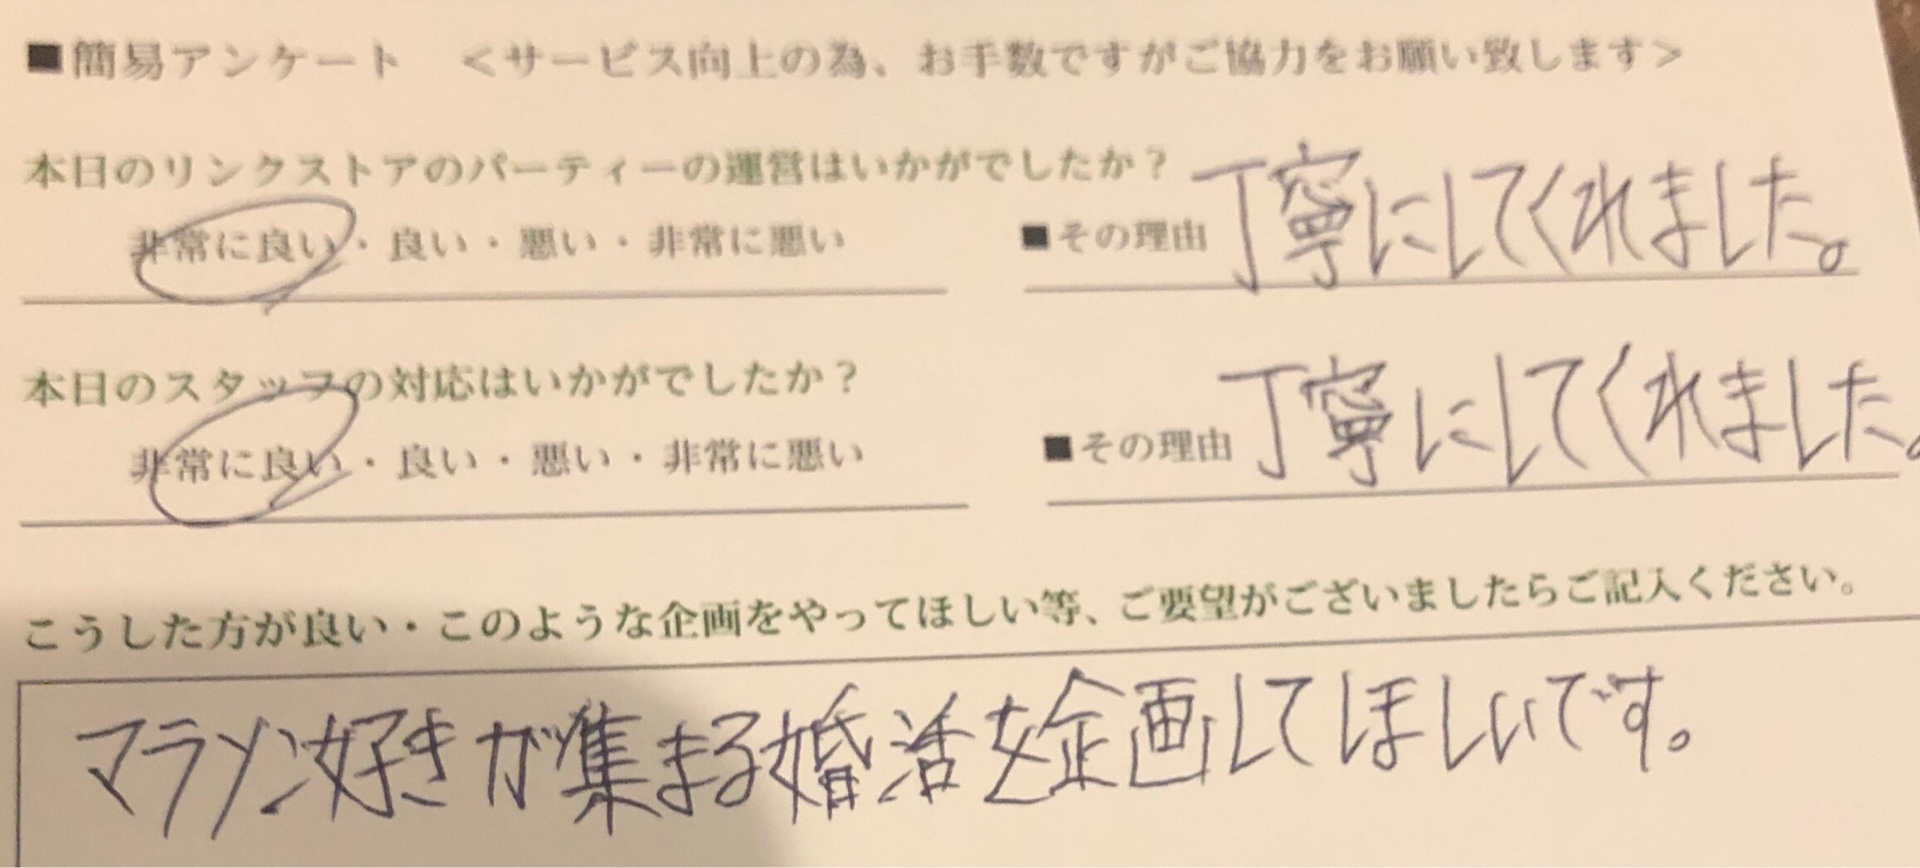 ■簡易アンケート　＜サービス向上の為、お手数ですがご協力をお願い致します＞
本日のリンクストアのパーティーの運営はいかがでしたか？
非常に良い・良い・悪い・非常に悪い　■その理由 丁寧にしてくれました。
本日のスタッフの対応はいかがでしたか？
非常に良い・良い・悪い・非常に悪い　■その理由 丁寧にしてくれました。
こうした方が良い・このような企画をやってほしい等、ご要望がございましたらご記入ください。
マラソン好きが集まる婚活を企画してほしいです。